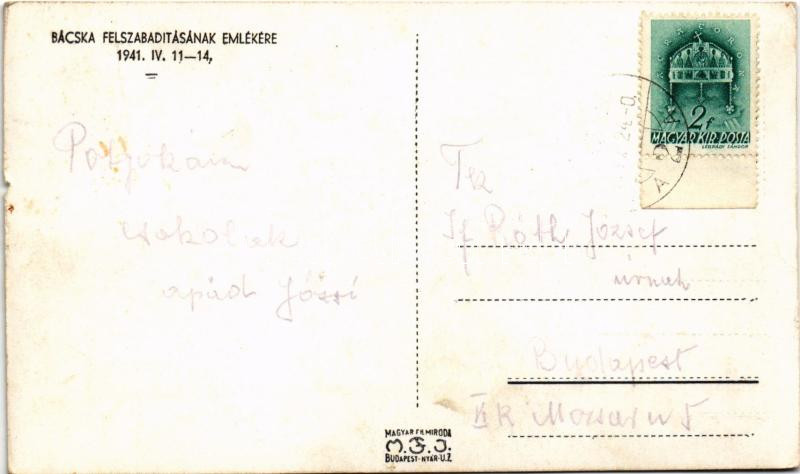 BÁCSKA FELSZABADITÁSÁNAK EMLÉKÉRE
1941. IV. 11—14,
csókollak
apád Józsi
2f
MAGYAR KIR. POSTA
LÉGRÁDY SÁNDOR
Tek
If Róth József
úrnak
Budapest
MAGYAR FILMIRODA
M.F.I.
BUDAPEST-NYÁR-U.2